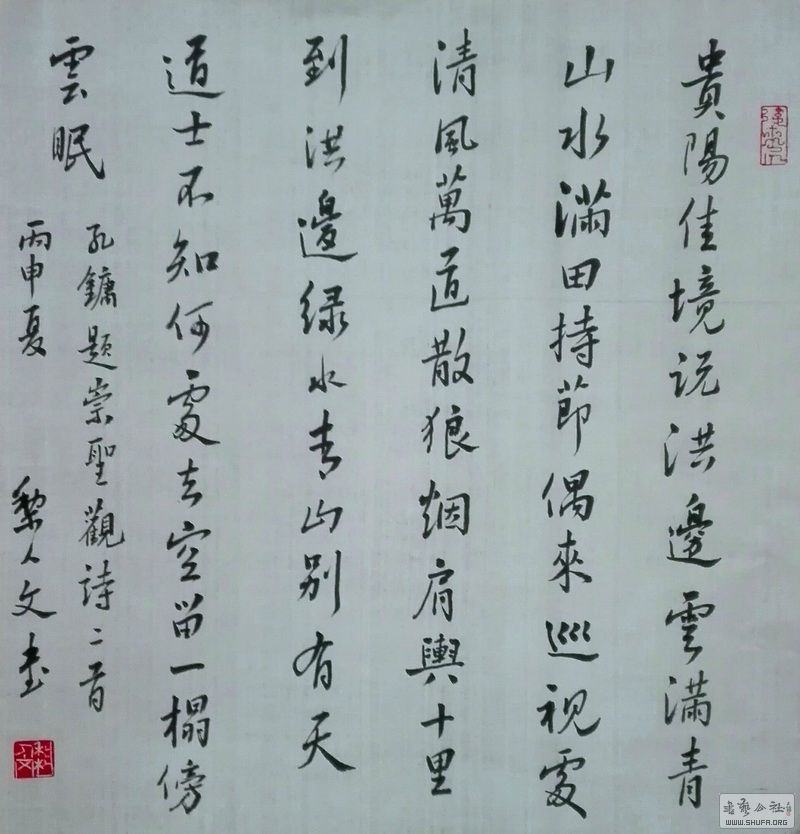 貴陽佳境説洪邊雲滿青
山水滿田持節偶來巡視處
清風萬道散狼烟肩輿十里
到洪邊绿水青山别有天
道士不知何處去空留一榻傍
雲眠
孔鏞題崇聖觀詩二首
丙申夏
黎人文书
书艺公社
WWW.SHUFA.ORG